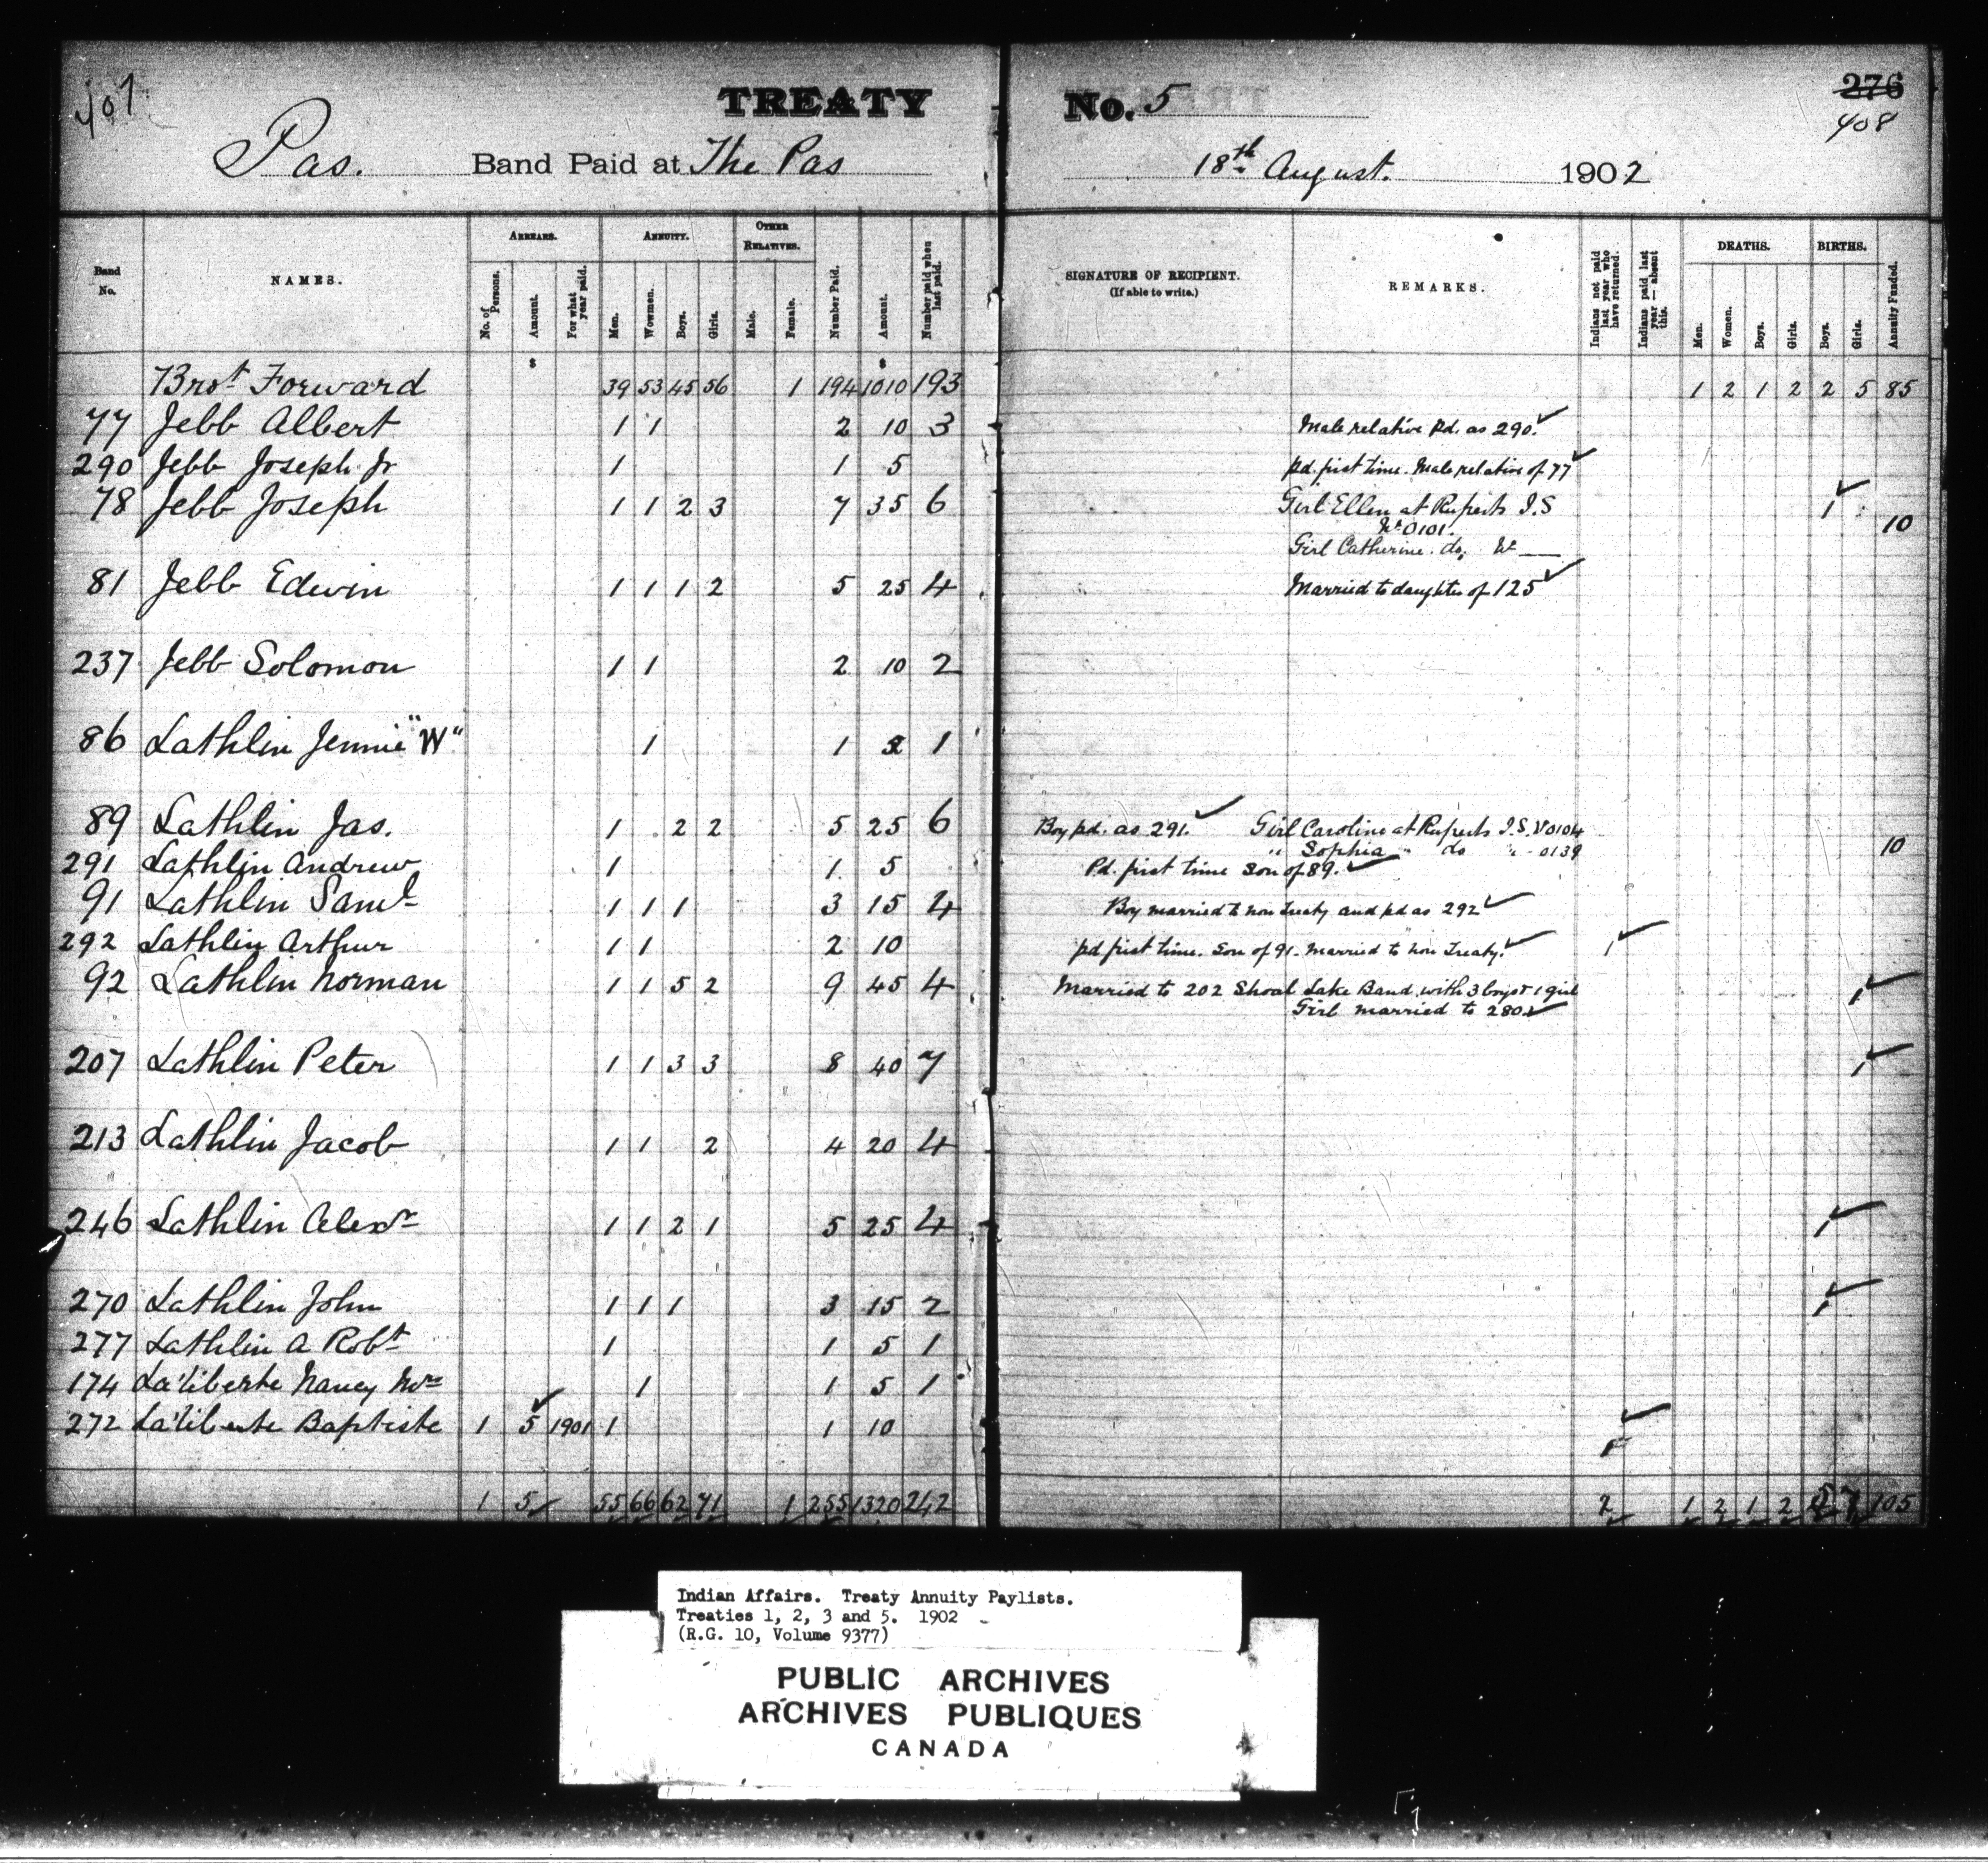 407
TREATY No. 5
276
408
Pas. Band Paid at The Pas 18th August. 1902
Band No.
NAMES.
ARREARS.
No. of Persons.
Amount.
For what year paid.
ANNUITY.
Men.
Wowmen.
Boys.
Girls.
OTHER RELATIVES.
Male.
Female.
Number Paid.
Amount.
Number paid when last paid.
SIGNATURE OF RECIPIENT.
(If able to write.)
REMARKS.
Indians not paid last year who have returned.
Indians paid last year — absent this.
DEATHS.
Men.
Women.
Boys.
Girls.
BIRTHS.
Boys.
Girls.
Annuity Funded.
$ $
Brot Forward 39 53 45 56 1 194 1010 193 1 2 1 2 2 5 85
77 Jebb Albert 1 1 2 10 3 Male relative Pd. as 290. ✓
290 Jebb Joseph Jr 1 1 5 pd. first time. Male relative of 77 ✓
78 Jebb Joseph 1 1 2 3 7 35 6 Girl Ellen at Ruperts I.S 1 ✓
No 0101. 10
Girl Catherine. do, No —
81 Jebb Edwin 1 1 1 2 5 25 4 Married to daughter of 125 ✓
237 Jebb Solomon 1 1 2 10 2
86 Lathlin Jennie "W" 1 1 5 1
89 Lathlin Jas. 1 2 2 5 25 6 Boy pd. as 291. ✓ Girl Caroline at Ruperts I.S. No 0104
" Sophia " do " - 0139 10
291 Lathlin Andrew 1 1 5 Pd. first time Son of 89. ✓
91 Lathlin Saml 1 1 1 3 15 4 Boy married to non Treaty and pd as 292 ✓
292 Lathlin Arthur 1 1 2 10 pd first time. Son of 91. Married to non Treaty. ✓ 1 ✓
92 Lathlin Norman 1 1 5 2 9 45 4 Married to 202 Shoal Lake Band with 3 boys & 1 girl 1 ✓
Girl married to 280 ✓
207 Lathlin Peter 1 1 3 3 8 40 7 1 ✓
213 Lathlin Jacob 1 1 2 4 20 4
246 Lathlin Alexr 1 1 2 1 5 25 4 1 ✓
270 Lathlin John 1 1 1 3 15 2 1 ✓
277 Lathlin A Robt 1 1 5 1
174 La'liberte Nancy Mrs 1 1 5 1
272 La'liberte Baptiste 1 5 ✓ 1901 1 1 10 1 ✓
1 5 55 66 62 71 1 255 1320 242 2 1 2 1 2 5 7 105
Indian Affairs. Treaty Annuity Paylists.
Treaties 1, 2, 3 and 5. 1902
(R.G. 10, Volume 9377)
PUBLIC ARCHIVES
ARCHIVES PUBLIQUES
CANADA